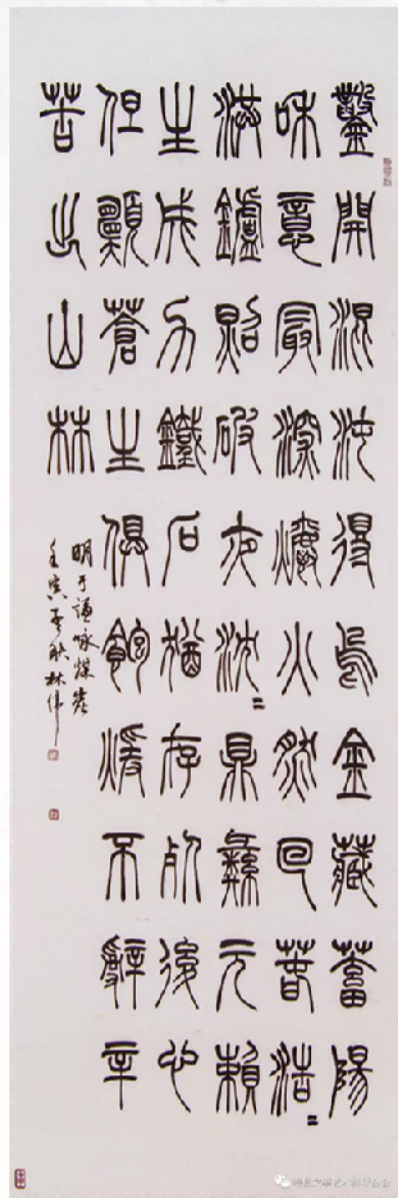 鑿開混沌得烏金藏蓄陽
和意最深爝火然回春浩〻
洪鑪照破夜沈〻鼎彝元賴
生成力鐵石猶存死後心
但願蒼生俱飽煖不辭辛
苦出山林
明于謙咏煤炭
壬寅 林伟